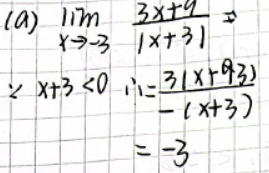 (a) lim x→-3 3x+9 / |x+3| =
∵ x+3<0 ∴ = 3(x+3) / -(x+3)
= -3